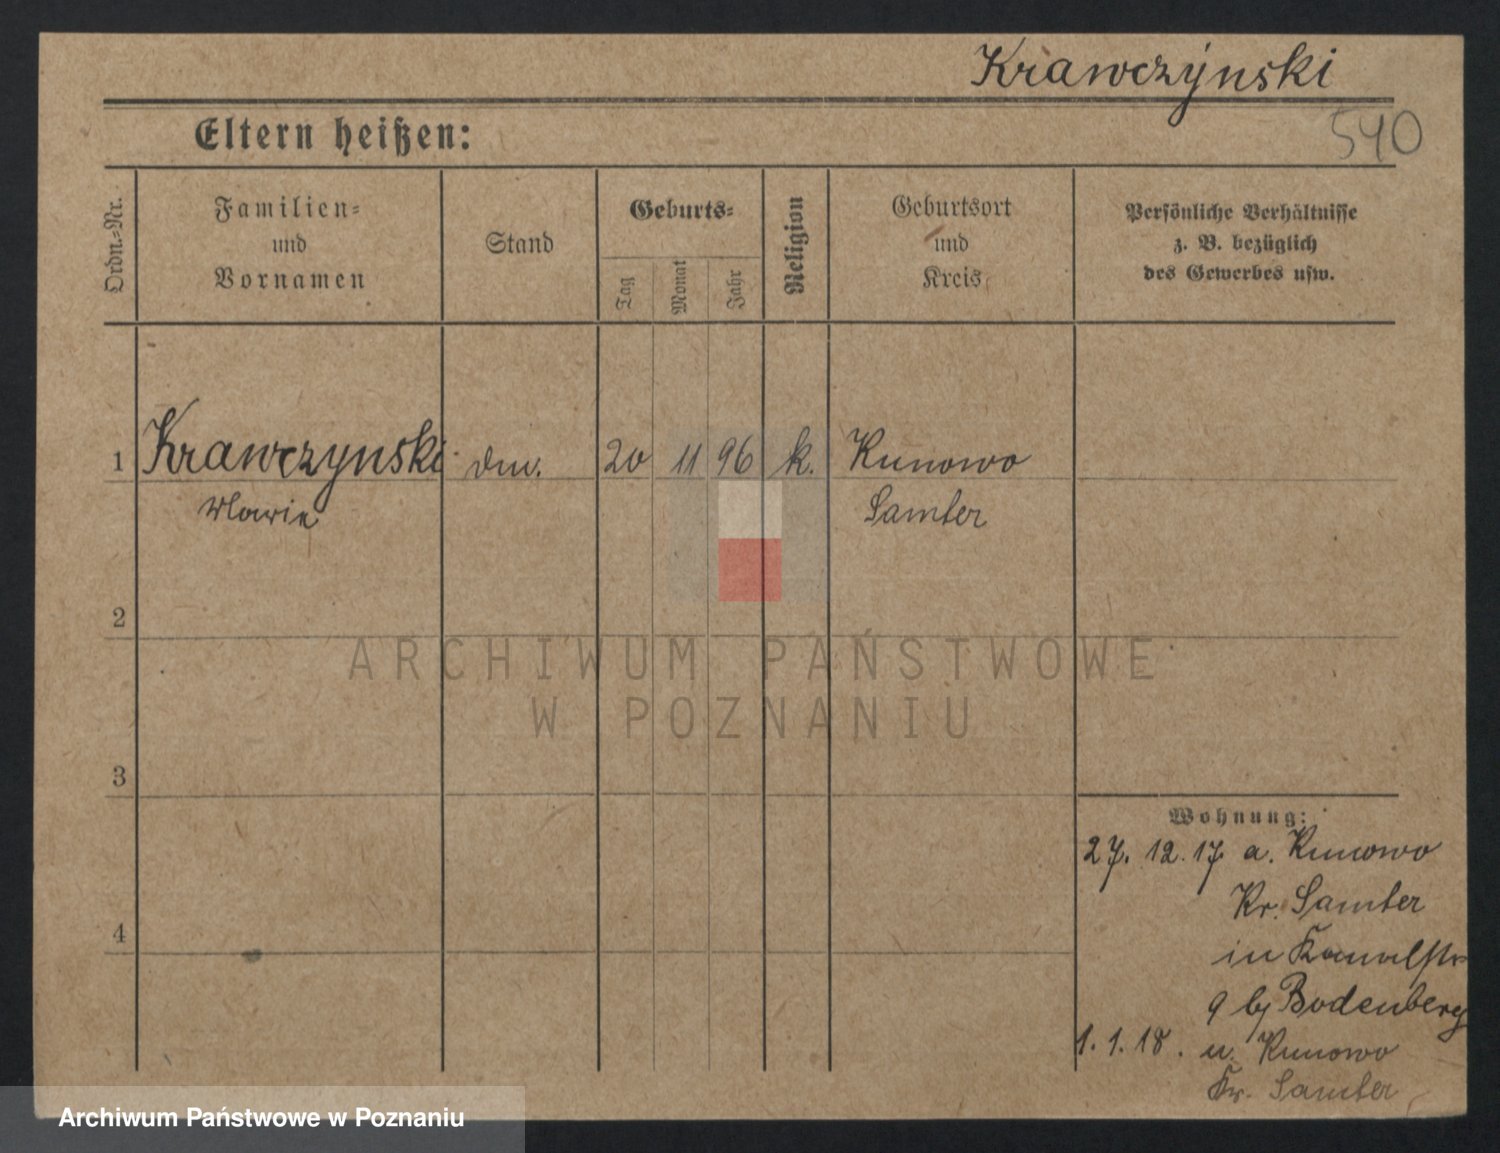 Krawczyński
540
Eltern heißen:
Ordn.-Nr.
Familien-
und
Vornamen
Stand
Geburts-
Tag
Monat
Jahr
Religion
Geburtsort
und
Kreis
Persönliche Verhältnisse
z. B. bezüglich
des Gewerbes usw.
1 Krawczynski 20 11 96 k. Kunowo
Marie Samter
2
ARCHIWUM PAŃSTWOWE
W POZNANIU
3
Wohnung:
27. 12. 17 a. Kunowo
Kr. Samter
4
in Kanalstr
9 bj Bodenberg
1. 1. 18. n. Kunowo
Kr. Samter
Archiwum Państwowe w Poznaniu